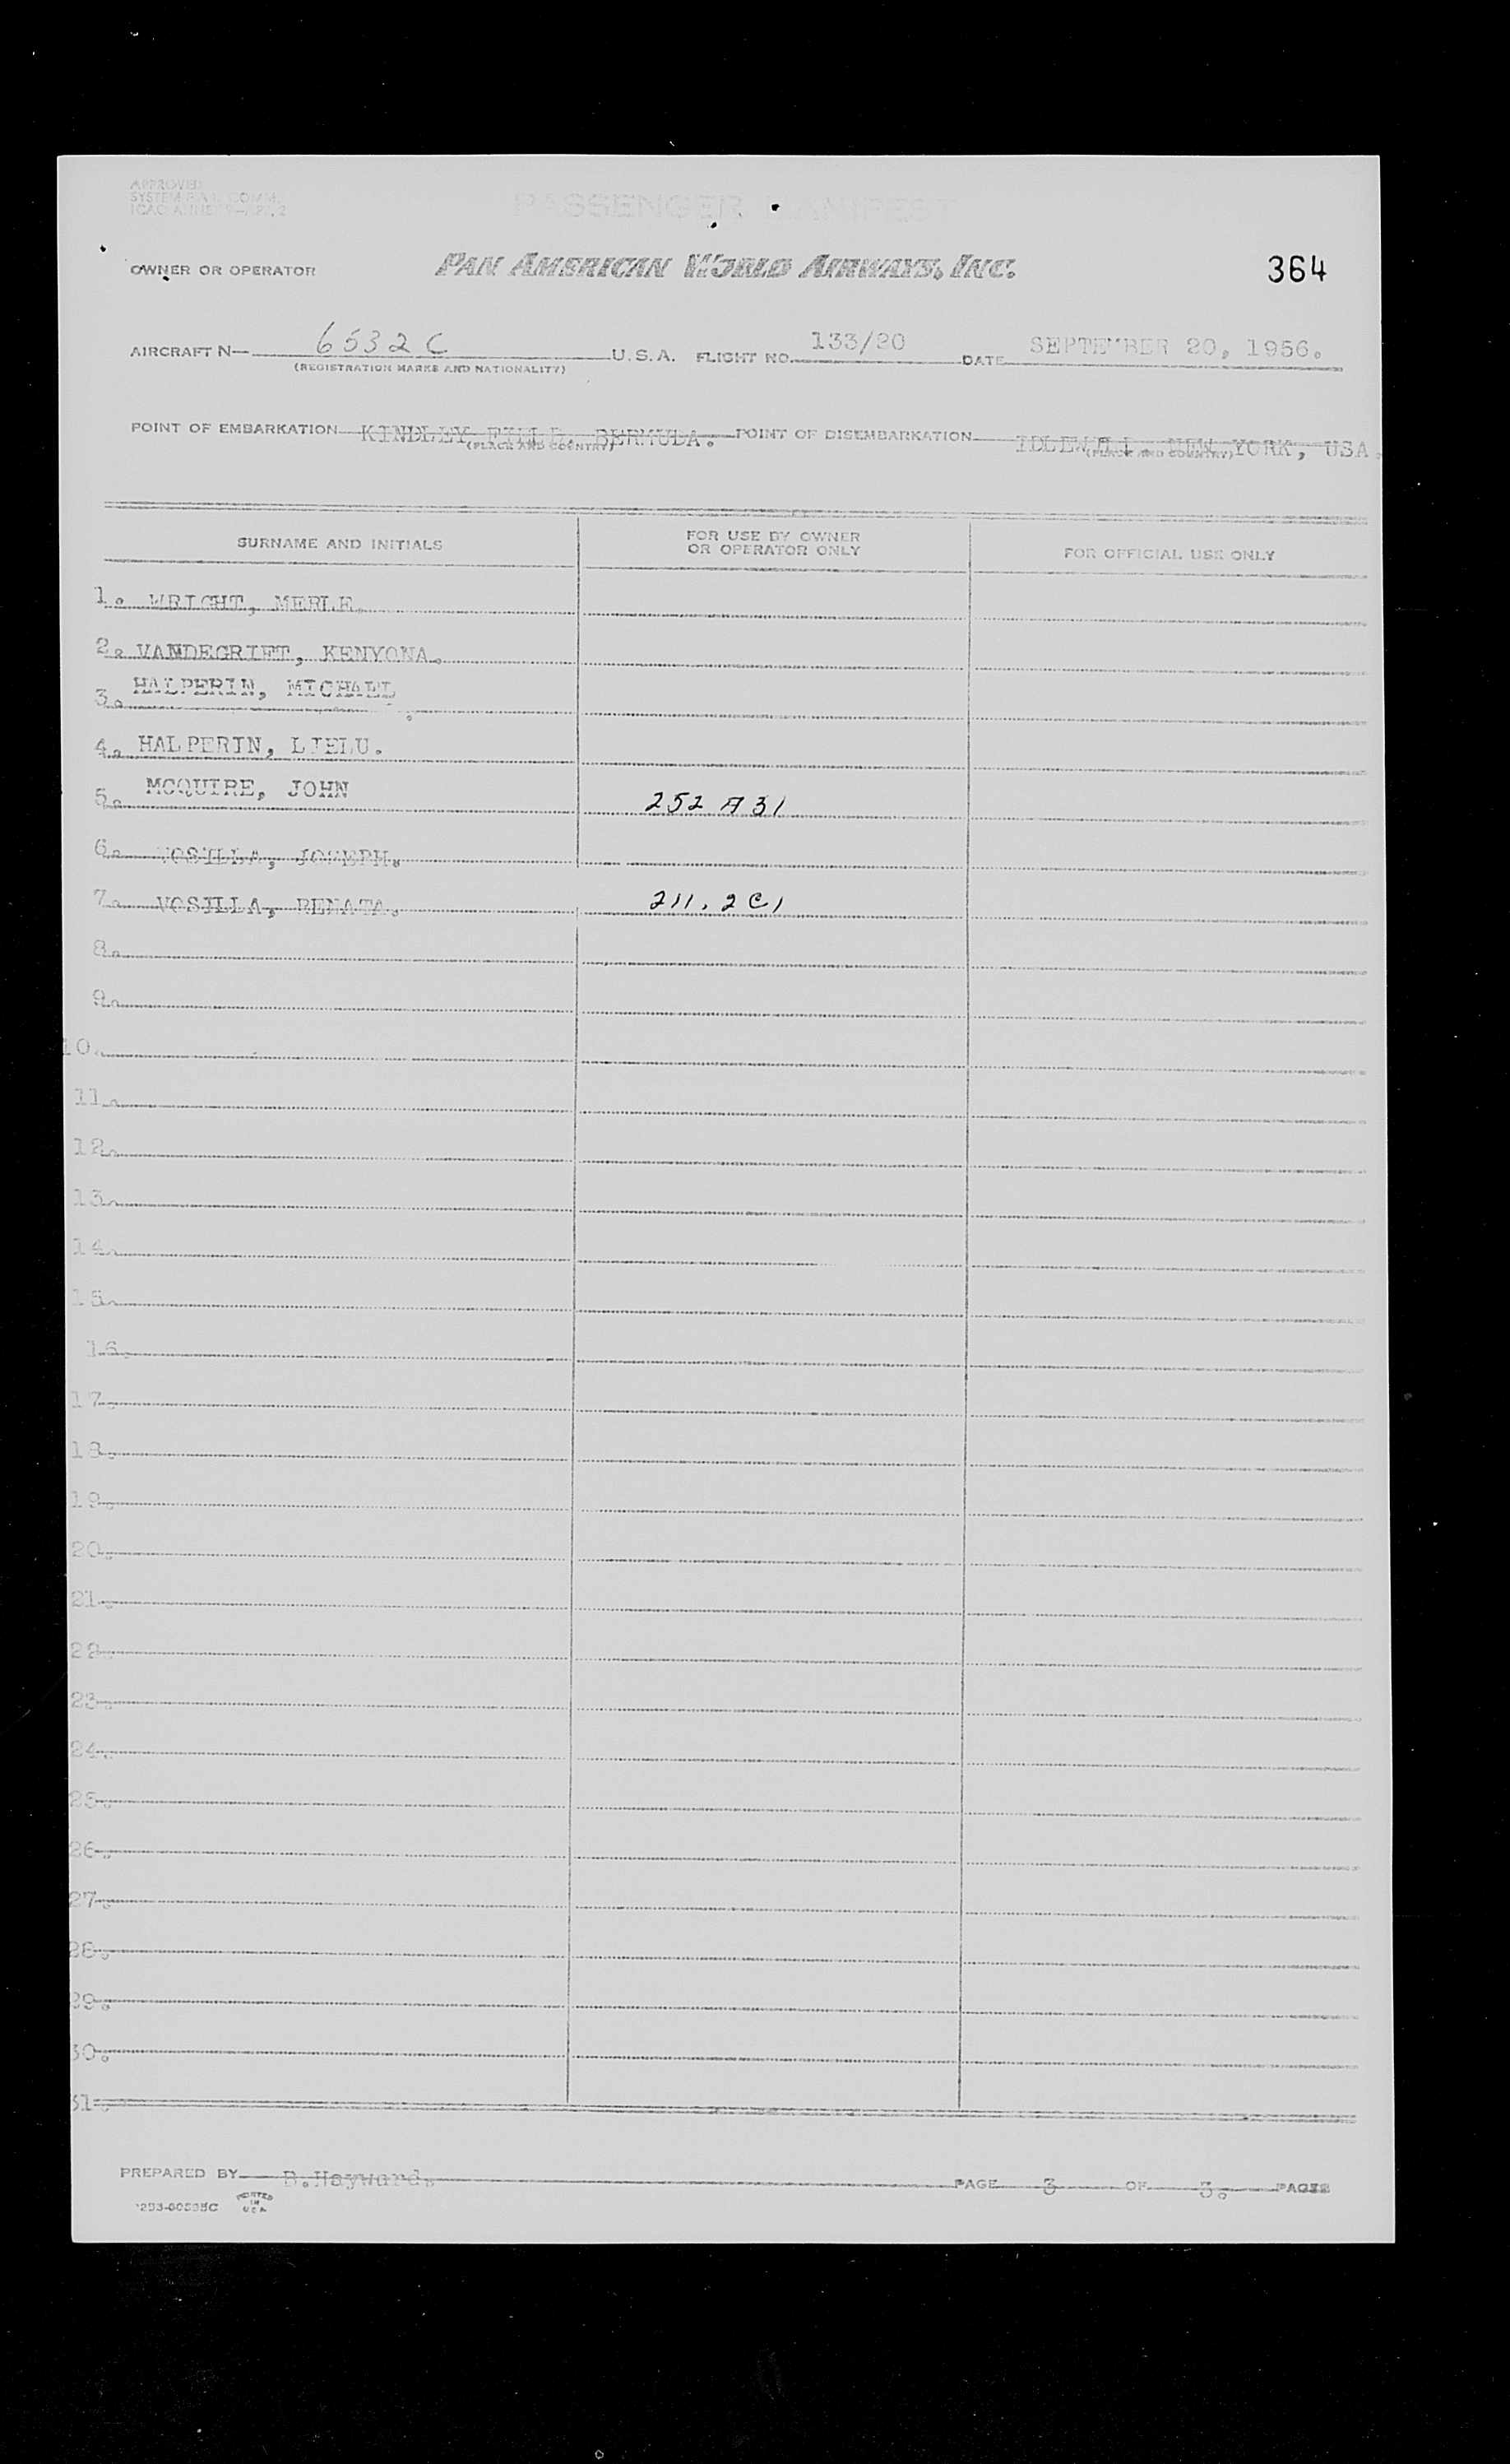 APPROVED
PASSENGER MANIFEST
OWNER OR OPERATOR PAN AMERICAN WORLD AIRWAYS, INC. 364
AIRCRAFT N— 6532C U.S.A. FLIGHT NO. 133/20 DATE SEPTEMBER 20, 1956.
(REGISTRATION MARKS AND NATIONALITY)
POINT OF EMBARKATION KINDLEY FIELD, BERMUDA. POINT OF DISEMBARKATION IDLEWILD, NEW YORK, USA.
(PLACE AND COUNTRY) (PLACE AND COUNTRY)
SURNAME AND INITIALS FOR USE BY OWNER OR OPERATOR ONLY FOR OFFICIAL USE ONLY
1. WRIGHT, MERLE.
2. VANDEGRIFT, KENYONA.
3. HALPERIN, MICHAEL.
4. HALPERIN, LIELU.
5. MCQUIRE, JOHN 252 A 31
6. VOSILLA, JOSEPH.
7. VOSILLA, RENATA. 211.2C1
8.
9.
10.
11.
12.
13.
14.
15.
16.
17.
18.
19.
20.
21.
22.
23.
24.
25.
26.
27.
28.
29.
30.
31.
PREPARED BY B.Hayward. PAGE 3 OF 3. PAGES
PRINTED IN U.S.A.